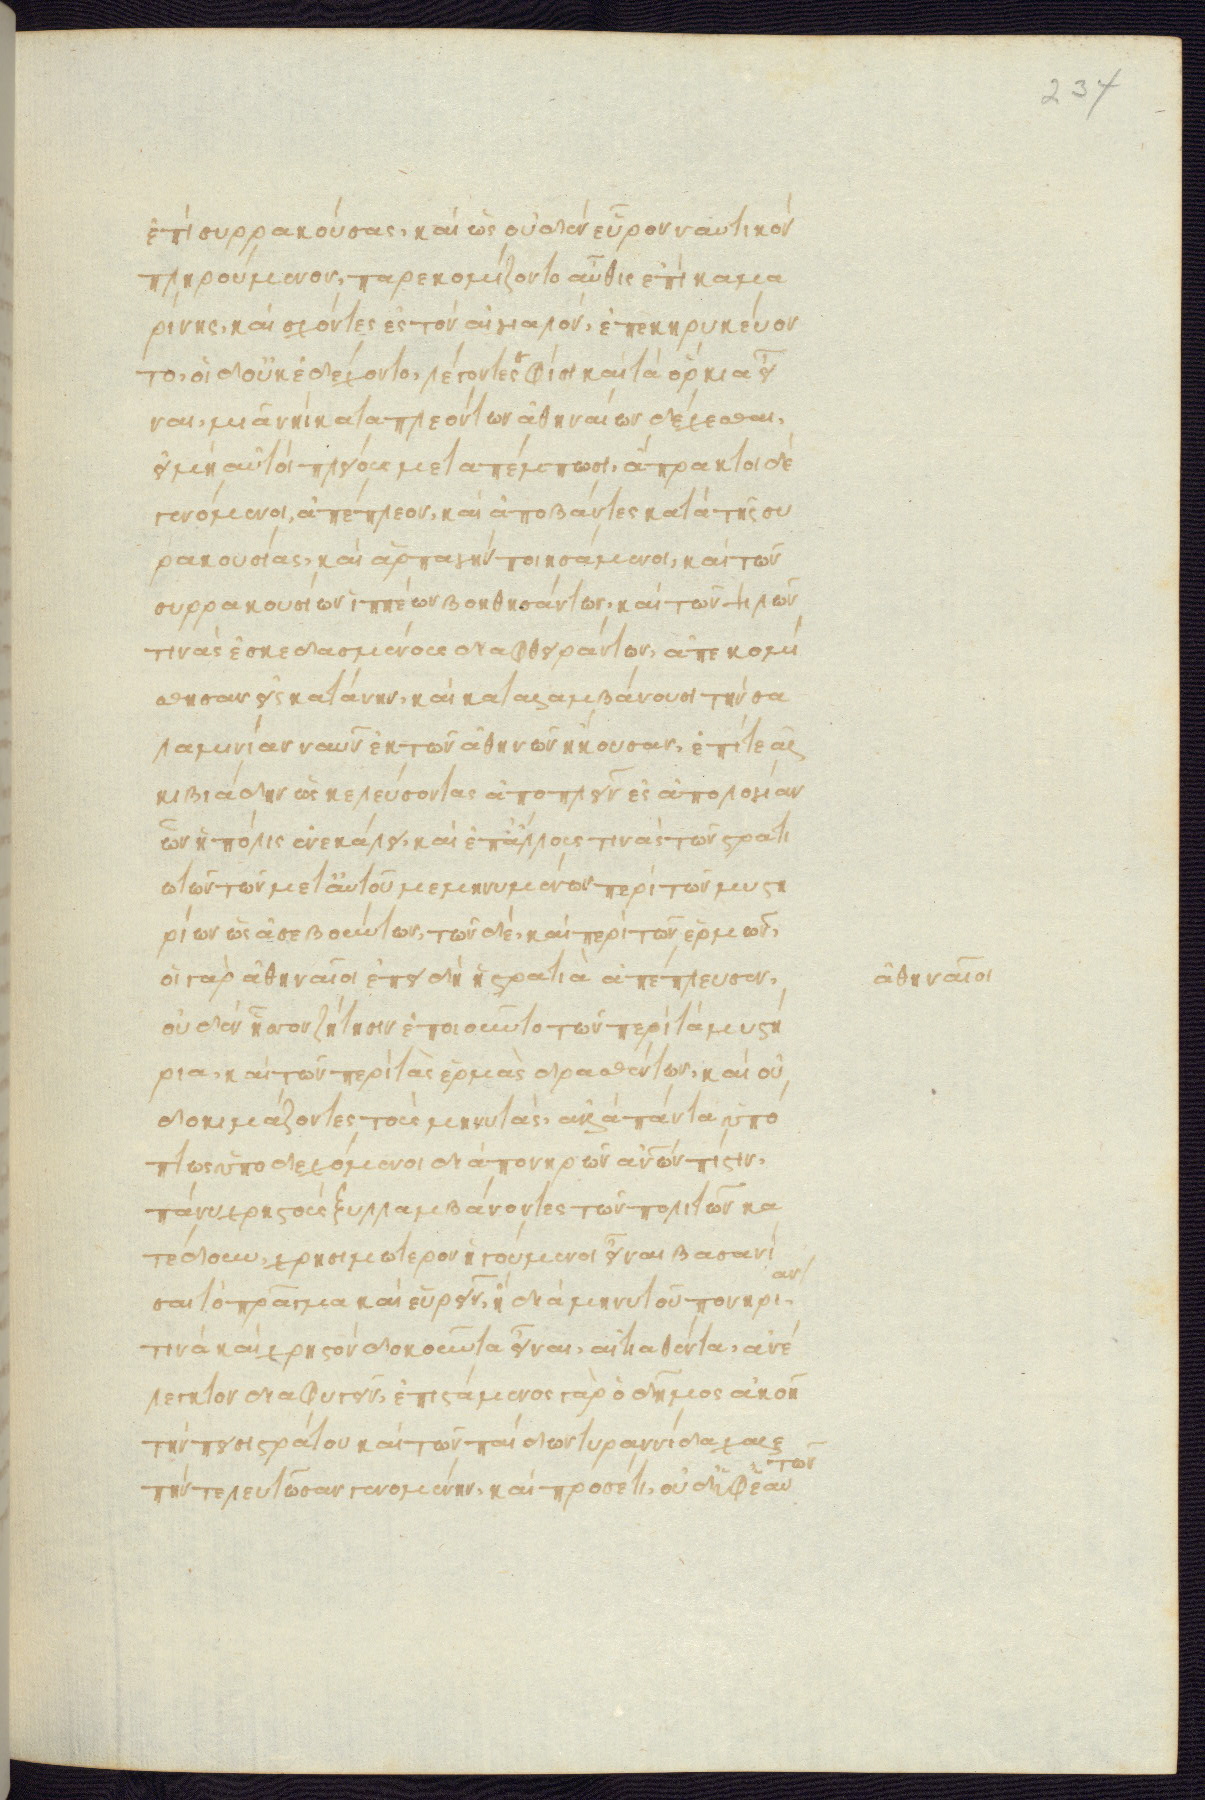 234
ἐπὶ συρρακούσας, καὶ ὡς οὐδὲν εὗρον ναυτικὸν
πληρούμενον, παρεκομίζοντο αὖθις ἐπὶ καμα
ρίνης, καὶ σχόντες ἐς τὸν αἰγιαλὸν, ἐπεκηρυκεύον
το, οἱ δ' οὐκ ἐδέχοντο, λέγοντες σφίσι καὶ τὰ ὅρκια εἶ
ναι, μιᾷ νηῒ καταπλεόντων ἀθηναίων δέχεσθαι,
ἢν μὴ αὐτοὶ πλείους μεταπέμπωσι, ἄπρακτοι δὲ
γενόμενοι, ἀπέπλεον, καὶ ἀποβάντες κατά τῆς συ
ρακουσίας, καὶ ἁρπαγὴν ποιησάμενοι, καὶ τῶν
συρρακουσίων ἱππέων βοηθησάντων, καὶ τῶν ψιλῶν
τινὰς ἐσκεδασμένους διαφθειράντων, ἀπεκομί
σθησαν εἰς κατάνην, καὶ καταλαμβάνουσι τὴν σα
λαμινίαν ναῦν ἐκ τῶν ἀθηνῶν ἥκουσαν, ἐπί τε ἀλ
κιβιάδην ὡς κελεύσοντας ἀποπλεῖν ἐς ἀπολογίαν
ὧν ἡ πόλις ἐνεκάλει, καὶ ἐπ' ἄλλους τινὰς τῶν στρατι
ωτῶν τῶν μετ' αὐτοῦ μεμηνυμένων περὶ τῶν μυστη
ρίων ὡς ἀσεβούντων, τῶν δὲ, καὶ περὶ τῶν ἑρμῶν,
οἱ γὰρ ἀθηναῖοι ἐπειδὴ ἡ στρατιὰ ἀπέπλευσεν,
ἀθηναῖοι
οὐδὲν ἧσσον ζήτησιν ἐποιοῦντο τῶν περὶ τὰ μυστή
ρια, καὶ τῶν περὶ τὰς ἑρμὰς δρασθέντων, καὶ οὐ
δοκιμάζοντες τοὺς μηνυτὰς, ἀλλὰ πάντα ὑπό
πτως ὑποδεχόμενοι διὰ πονηρῶν ἀνῶν πίστιν,
πάνυ χρηστοὺς ξυλλαμβάνοντες τῶν πολιτῶν κα
τέδουν, χρησιμώτερον ἡγούμενοι εἶναι βασανί
σαι τὸ πρᾶγμα καὶ εὑρεῖν, ἢ διὰ μηνυτοῦ πονηρί-αν
τινὰ καὶ χρηστὸν δοκοῦντα εἶναι, αἰτιαθέντα, ἀνέ
λεγκτον διαφυγεῖν, ἐπιστάμενος γὰρ ὁ δῆμος ἀκοῇ
τὴν πεισιστράτου καὶ τῶν παίδων τυραννίδα χαλε
πὴν τελευτῶσαν γενομένην, καὶ προσέτι, οὐδ' ὑφ' ἑαυτῶν